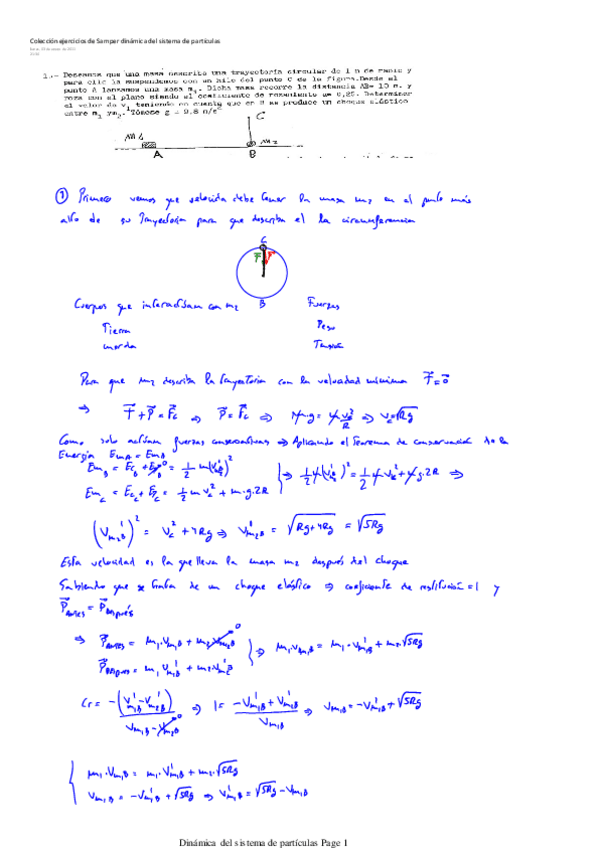 Colección ejercicios de Samper dinámica del sistema de partículas
1.- Deseamos que una masa describa una trayectoria circular de 1 m de radio y
para ello la suspendemos con un hilo del punto C de la figura. Desde el
punto A lanzamos una masa m₁. Dicha masa recorre la distancia AB= 10 m. y
roza con el plano siendo el coeficiente de rozamiento u= 0,25. Determinar
el valor de v₁ teniendo en cuenta que en B se produce un choque elástico
entre m₁ y m₂. Tómese g = 9.8 m/s²
C
m₁ m₂
A B
① Primero vemos que velocidad debe tener la masa m₂ en el punto más
alto de su trayectoria para que describa el la circunferencia
C
T P
B
Cuerpos que interactúan con m₂ Fuerzas
Tierra Peso
cuerda Tensión
Para que m₂ describa la trayectoria con la velocidad mínima T⃗=0⃗
⇒ T⃗+P⃗=F⃗c ⇒ P⃗=F⃗c ⇒ m·g = m v²c/R ⇒ vc=√Rg
Como solo actúan fuerzas conservativas ⇒ Aplicando el Teorema de conservación de la
Energía Em_B = Em_C
Em_B = Ec_B + Ep_B⁰ = 1/2 m(v'_B)² } ⇒ 1/2 m(v'_B)² = 1/2 m v²c + m g·2R ⇒
Em_C = Ec_C + Ep_C = 1/2 m vc² + m·g·2R
(V'm₂B)² = vc² + 4Rg ⇒ V'm₂B = √Rg+4Rg = √5Rg
Esta velocidad es la que lleva la masa m₂ después del choque
Sabiendo que se trata de un choque elástico ⇒ coeficiente de restitución = 1 y
P⃗antes = P⃗después
⇒ P⃗antes = m₁·Vm₁B + m₂·Vm₂B⁰ } ⇒ m₁·Vm₁B = m₁·V'm₁B + m₂·√5Rg
P⃗después = m₁ V'm₁B + m₂V'm₂B
Cr = -(V'm₁B - V'm₂B)/(Vm₁B - Vm₂B⁰) ⇒ 1 = (-V'm₁B + V'm₂B)/Vm₁B ⇒ Vm₁B = -V'm₁B + √5Rg
{ m₁·Vm₁B = m₁·V'm₁B + m₂·√5Rg
Vm₁B = -V'm₁B + √5Rg ⇒ V'm₁B = √5Rg - Vm₁B
Dinámica del sistema de partículas Page 1